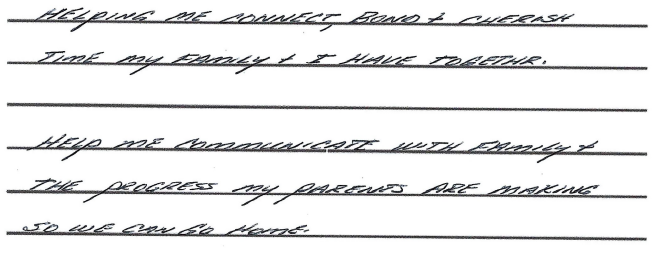 HELPING ME CONNECT, BOND & CHERISH
TIME MY FAMILY & I HAVE TOGETHR.
HELP ME COMMUNICATE WITH FAMILY &
THE PROGRESS MY PARENTS ARE MAKING
SO WE CAN GO HOME.